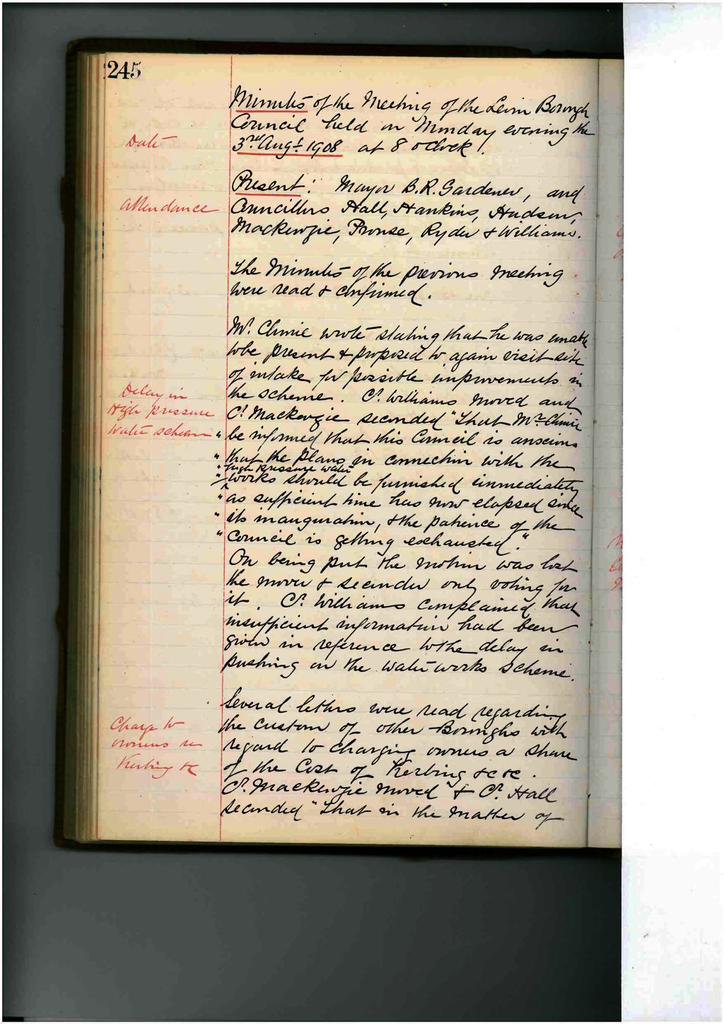 245
Minutes of the Meeting of the Levin Borough
Council held on Monday evening the
Date
3rd Augt. 1908 at 8 o'clock.
Present: Mayor B.R. Gardener, and
attendance
Councillors Hall, Hankins, Hudson,
Mackenzie, Prouse, Ryder & Williams.
The Minutes of the previous meeting
were read & confirmed.
Mr. Climie wrote stating that he was unable
to be present & proposed to again visit site
of intake for possible improvements in
Delay in
High pressure
Water scheme
the scheme. Cr. Williams moved and
Cr. Mackenzie seconded "That Mr. Climie
" be informed that this Council is anxious
" that the plans in connection with the
" high pressure water
" works should be furnished immediately
" as sufficient time has now elapsed since
" its inauguration, & the patience of the
" Council is getting exhausted."
On being put the motion was lost
the mover & seconder only voting for
it. Cr. Williams complained that
insufficient information had been
given in reference to the delay in
pushing on the waterworks scheme.
Several letters were read regarding
Charge to
owners re
Kerbing &c
the custom of other Boroughs with
regard to charging owners a share
of the Cost of Kerbing &c &c.
Cr. Mackenzie moved & Cr. Hall
seconded "That in the matter of